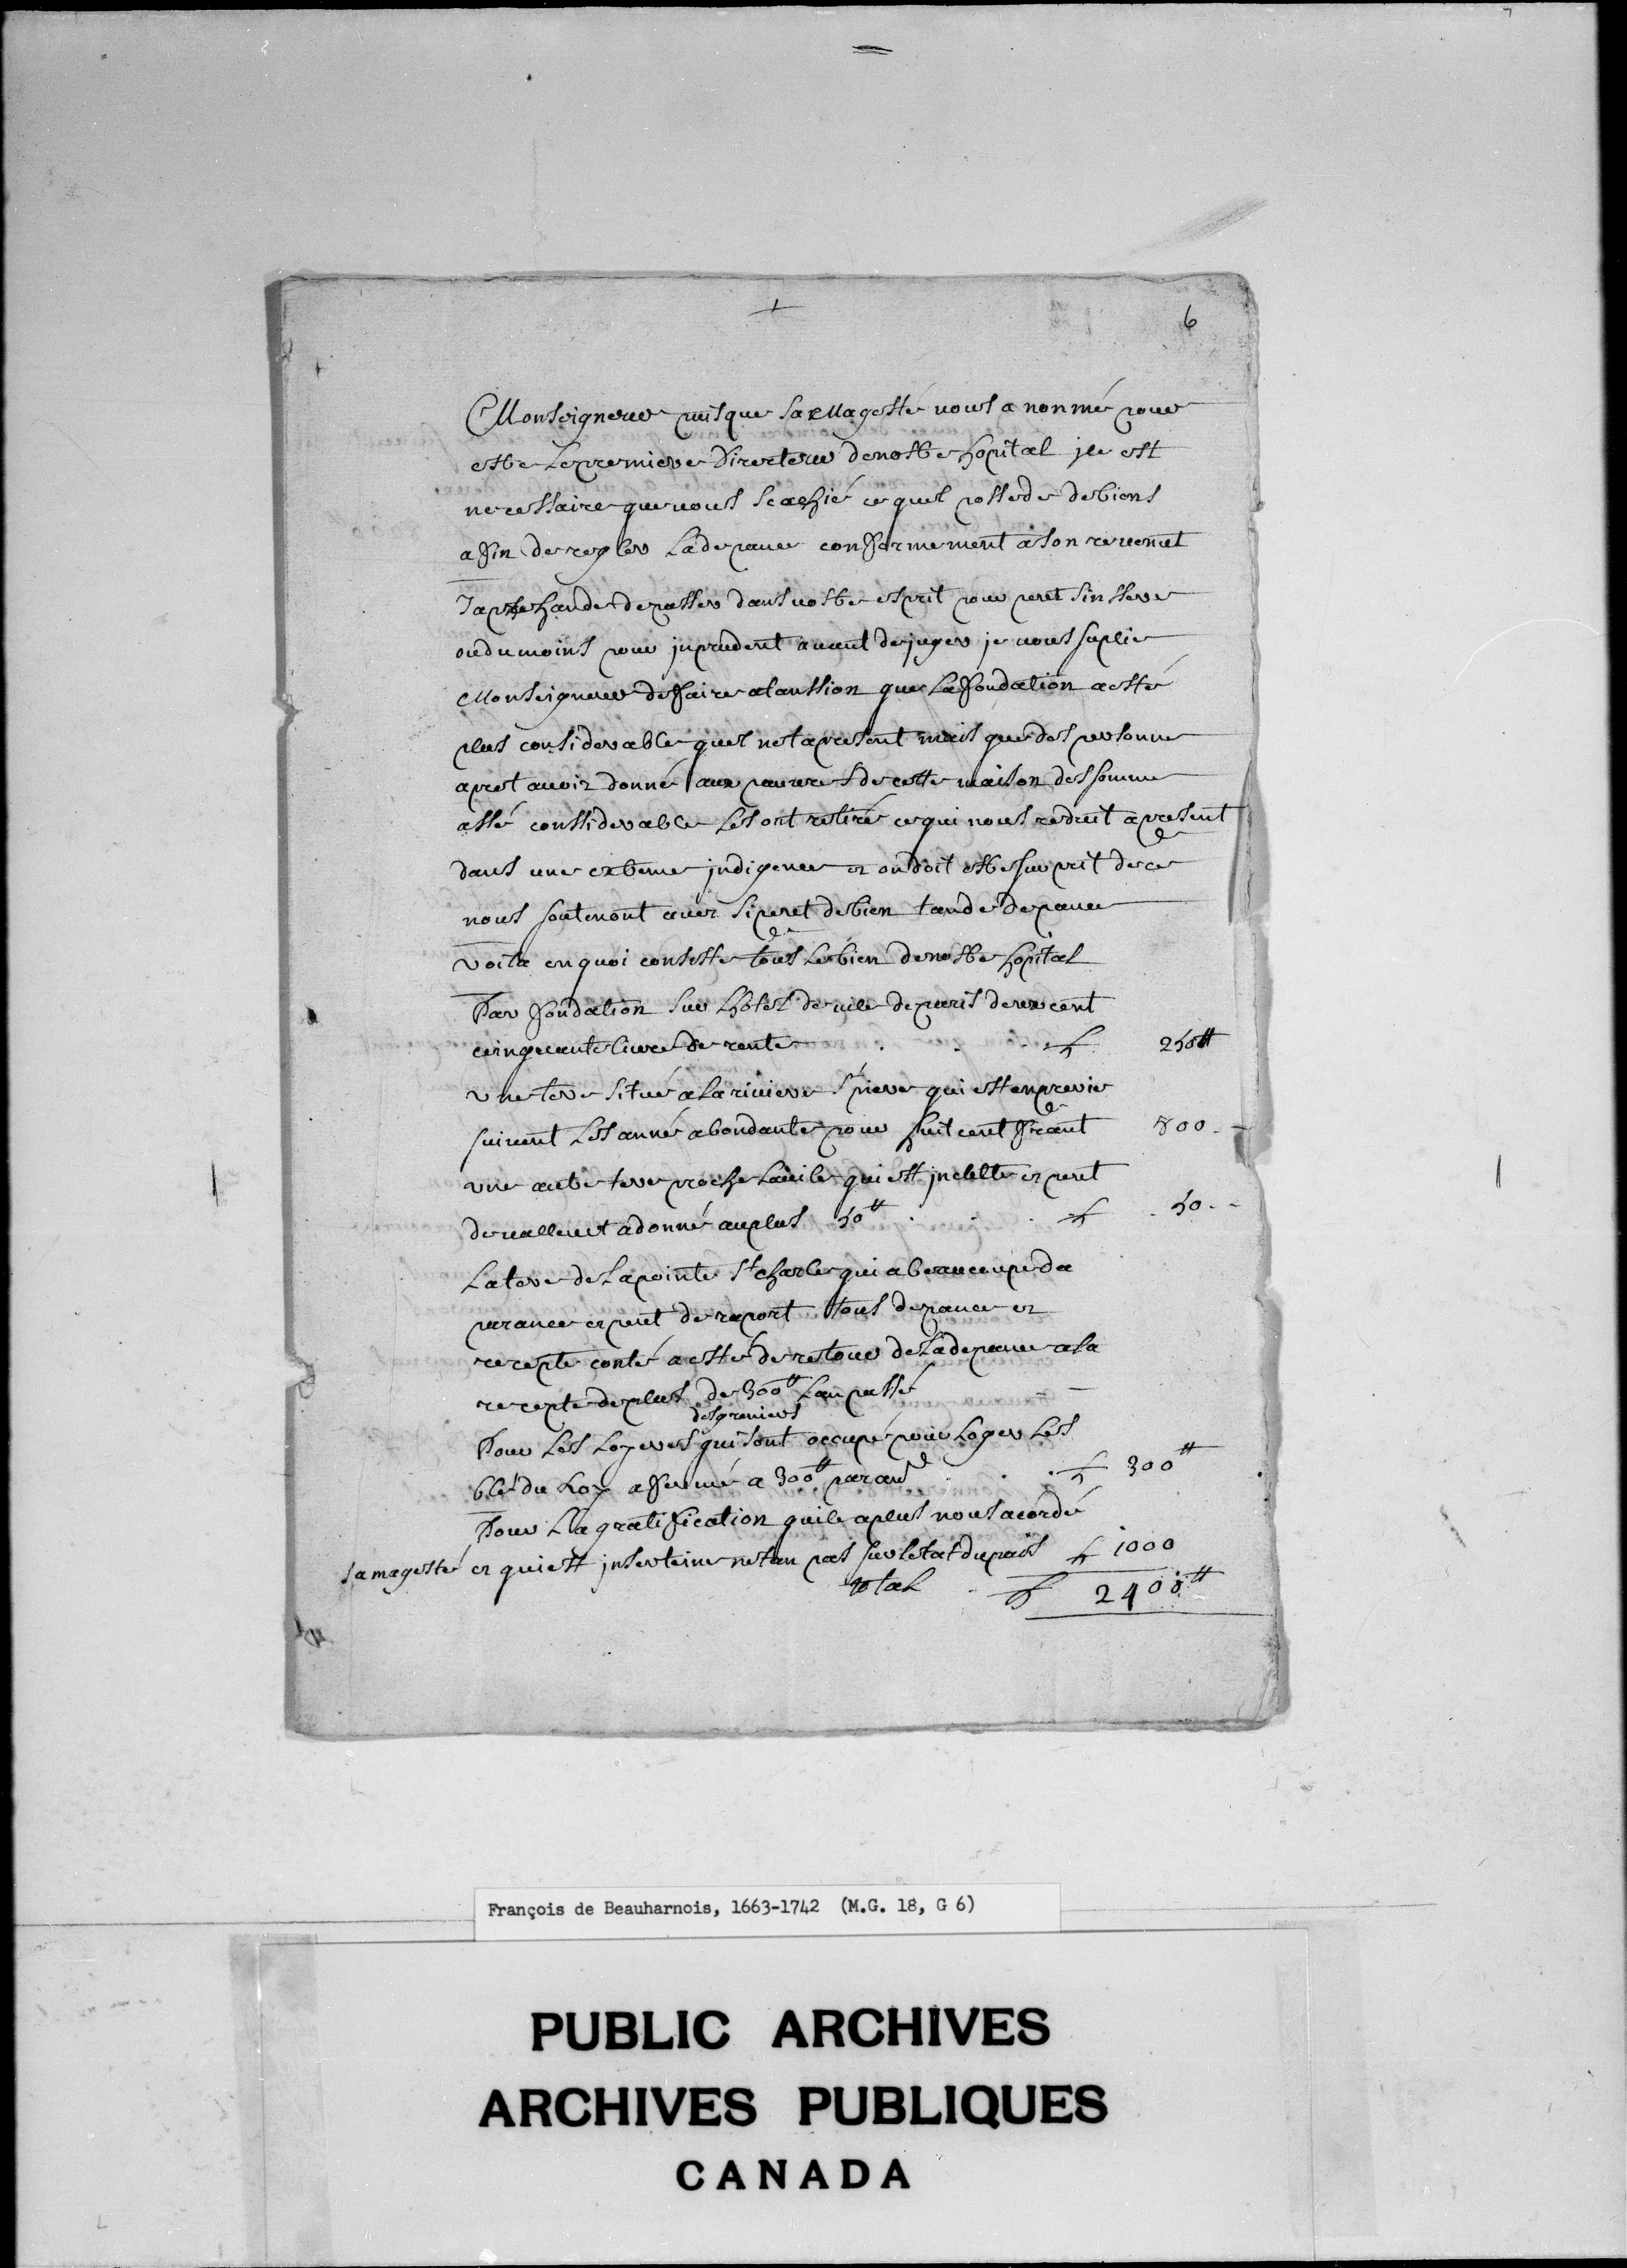 6
Monseigneur puisque Sa Magesté vous a nonmé pour
estre Le premiere Directeur de nostre hopital jle est
necessaire que vous scachié ce quel possede de biens
afin de regler La depance conformement a son revenut
Japrehande de passer dans vostre esprit pour peut sinssere
ou du moins pour jnprudent avant de juger je vous suplie
Monseigneur de faire atanssion que La fondation a esté
plus considerable quel nest apresent mais que des personne
apret avoir donné aux pauvres de cette maison des somme
assé conssiderable Les ont retiré ce qui nous reduit apresent
dans une extreme jndigence et on doit estre surprit de ce
nous soutenont avec si peut de bien tan de depance
voila en quoi consiste tous Le bien de nostre hopital
Par fondation sur Lhotel de vile de paris deux cent
cinquante livre de rente . . . 250#
une tere situé a La riviere St piere qui est en prerie
suivent Les anné abondante pour huit cent franc 800 -
une autre tere proche La vile qui est jnculte et peut
de vallent a donné au plus 50# . . . 50 - -
La tere de La pointe St charle qui a beaucoupe da
parance et peut de raport tous depance et
recepte conté a esté de retour de La depance a la
recepte de plus de 300# Lan passé - -
des greniers
Pour Les Loyeres qui sont occupé pour Loger Les
blé du Roy afermé a 300# par an . . . 300#
Pour La gratification quile a plus nous acordé
sa magesté et qui est jnserteine netan pas sur letat du païs 1000
total 2400#
François de Beauharnois, 1663-1742 (M.G. 18, G 6)
PUBLIC ARCHIVES
ARCHIVES PUBLIQUES
CANADA